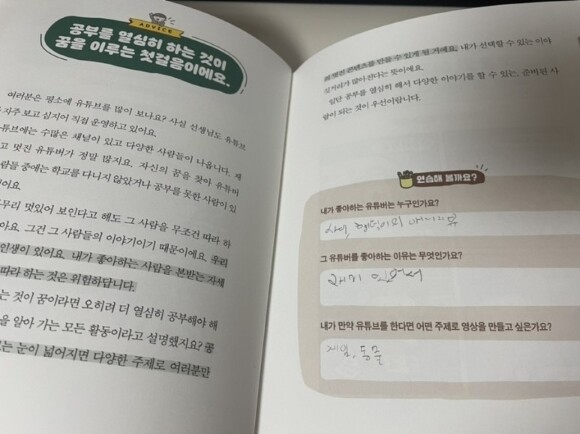 ADVICE
공부를 열심히 하는 것이
꿈을 이루는 첫걸음이에요.
여러분은 평소에 유튜브를 많이 보나요? 사실 선생님도 유튜브
자주 보고 심지어 직접 운영하고 있어요.
튜브에는 수많은 채널이 있고 다양한 사람들이 나옵니다. 재
고 멋진 유튜버가 정말 많지요. 자신의 꿈을 찾아 유튜버
람들 중에는 학교를 다니지 않았거나 공부를 못한 사람이 있
어요.
무리 멋있어 보인다고 해도 그 사람을 무조건 따라 하
아요. 그건 그 사람들의 이야기이기 때문이에요. 우리
인생이 있어요. 내가 좋아하는 사람을 본받는 자세
따라 하는 것은 위험하답니다.
는 것이 꿈이라면 오히려 더 열심히 공부해야 해
을 알아 가는 모든 활동이라고 설명했지요? 공
는 눈이 넓어지면 다양한 주제로 여러분만
콘텐츠를 만들 수 있게 될 거예요. 내가 선택할 수 있는 이야
깃거리가 많아진다는 뜻이에요.
일단 공부를 열심히 해서 다양한 이야기를 할 수 있는, 준비된 사
람이 되는 것이 우선이랍니다.
연습해 볼까요?
내가 좋아하는 유튜버는 누구인가요?
그 유튜버를 좋아하는 이유는 무엇인가요?
재미 있어서
내가 만약 유튜브를 한다면 어떤 주제로 영상을 만들고 싶은가요?
게임, 동물